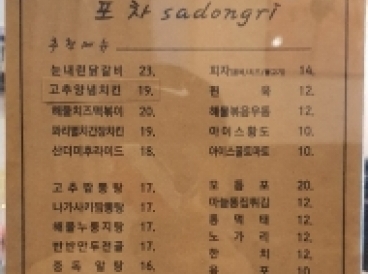 포차 sadongri
추천메뉴
눈내린닭갈비 23.
고추양념치킨 19.
해물치즈떡볶이 20.
와리별치간장치킨 19.
산더미후라이드 18.
고추짬뽕탕 17.
나가사키짬뽕탕 17.
해물누룽지탕 17.
한반만두전골 17.
중독알탕 16.
피자 14.
12.
해물볶음우동 12.
아이스황도 10.
아이스꿀토마토 10.
모듬포 20.
마늘똥집튀김 12.
통먹태 12.
노가리 12.
한치 12.
육포 10